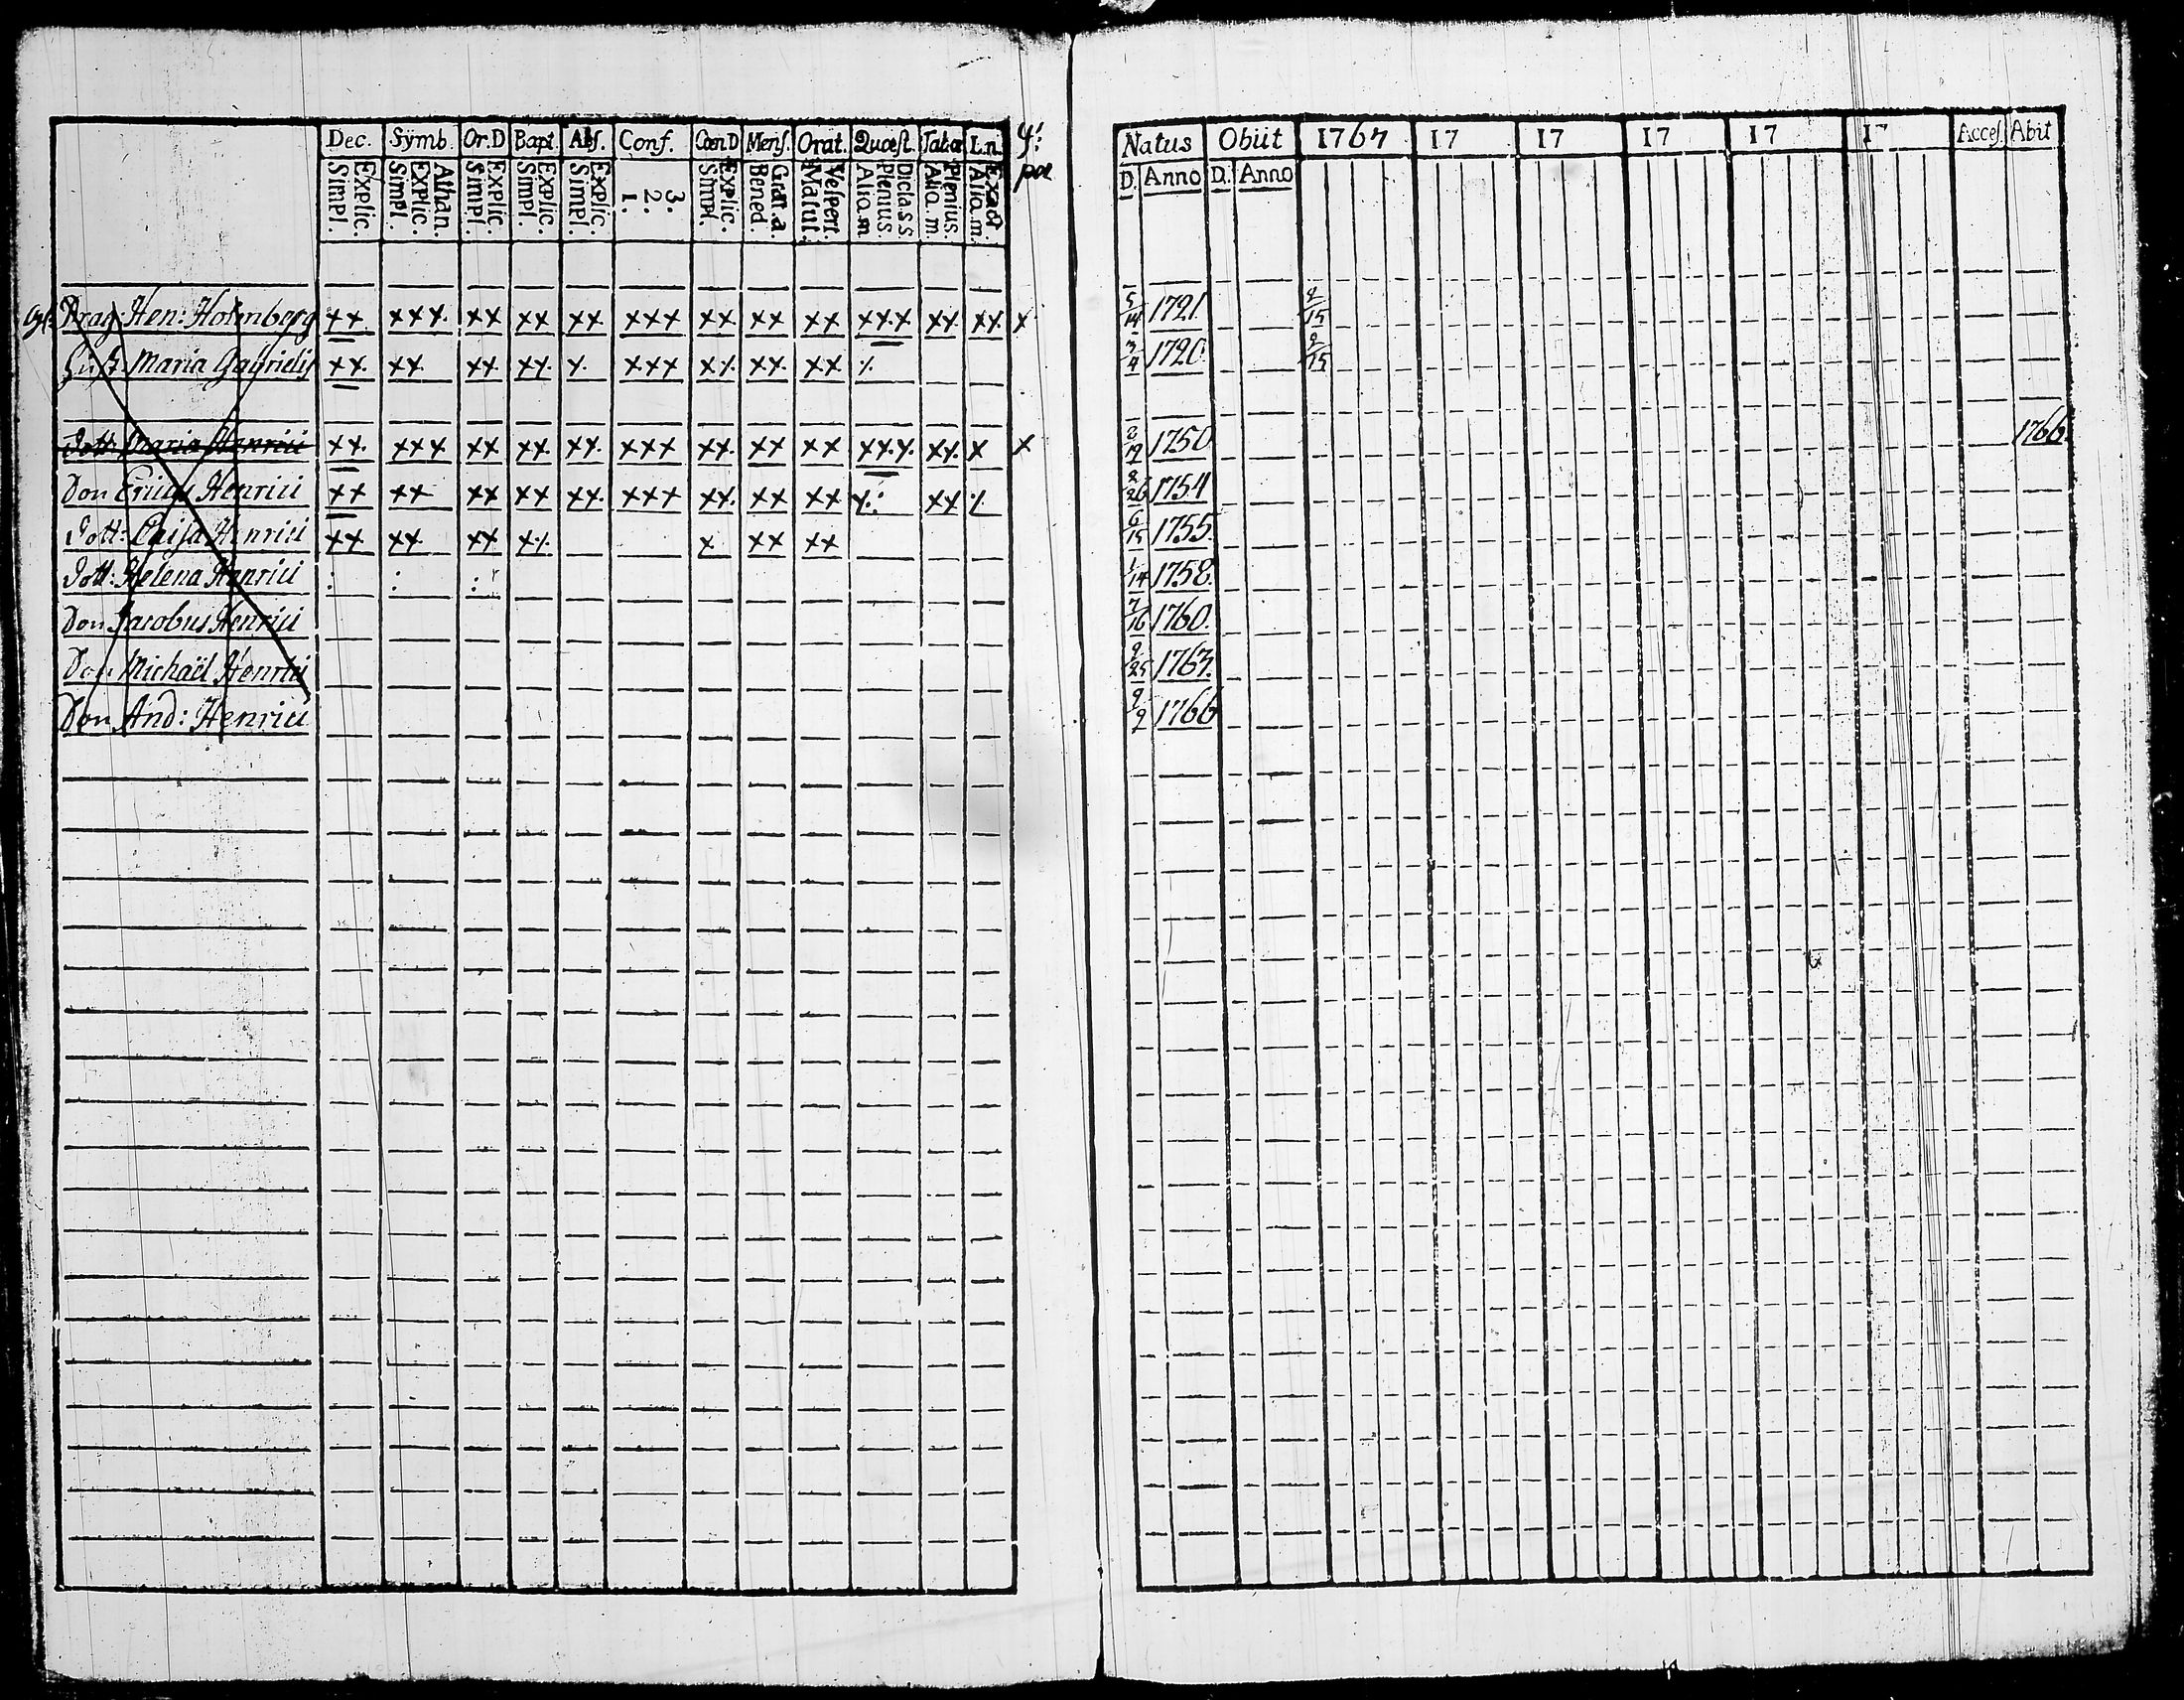 Dec. Symb. Or.D Bapt. Abs. Conf. Coen D Mens. Orat. Quæst. Tab.œ L.n.
Explic. Simpl. Athan. Explic. Simpl. Explic. Simpl. Explic. Simpl. Explic. Simpl. 3. 2. 1. Explic. Simpl. Grat. a. Bened. Vespert. Matut. Dicta s.s. Plenius. Aliq. m Plenius. Aliq. m. Exact. Aliq. m.
Natus Obiit 1767 17 17 17 17 17 Acces. Abit
D. Anno D. Anno
Drag Hen: Holmberg xx xxx xx xx xx xxx xx xx xx xxx xx xx x 5/14 1721
Hust. Maria Gabrielis xx xx xx xx x xxx xx xx xx 3/4 1720
Dott. Maria Henrici xx xxx xx xx xx xxx xx xx xx xxx xx x x 1750 1766
Don Ericus Henrici xx xx xx xx xx xxx xx xx xx xx 1754
Dott: Caisa Henrici xx xx xx x x xx xx 6/15 1755
Dott: Helena Henrici : : : 1/14 1758
Don Jacobus Henrici 7/16 1760
Don Michaël Henrici 9/25 1763
Don And: Henrici 9/9 1766